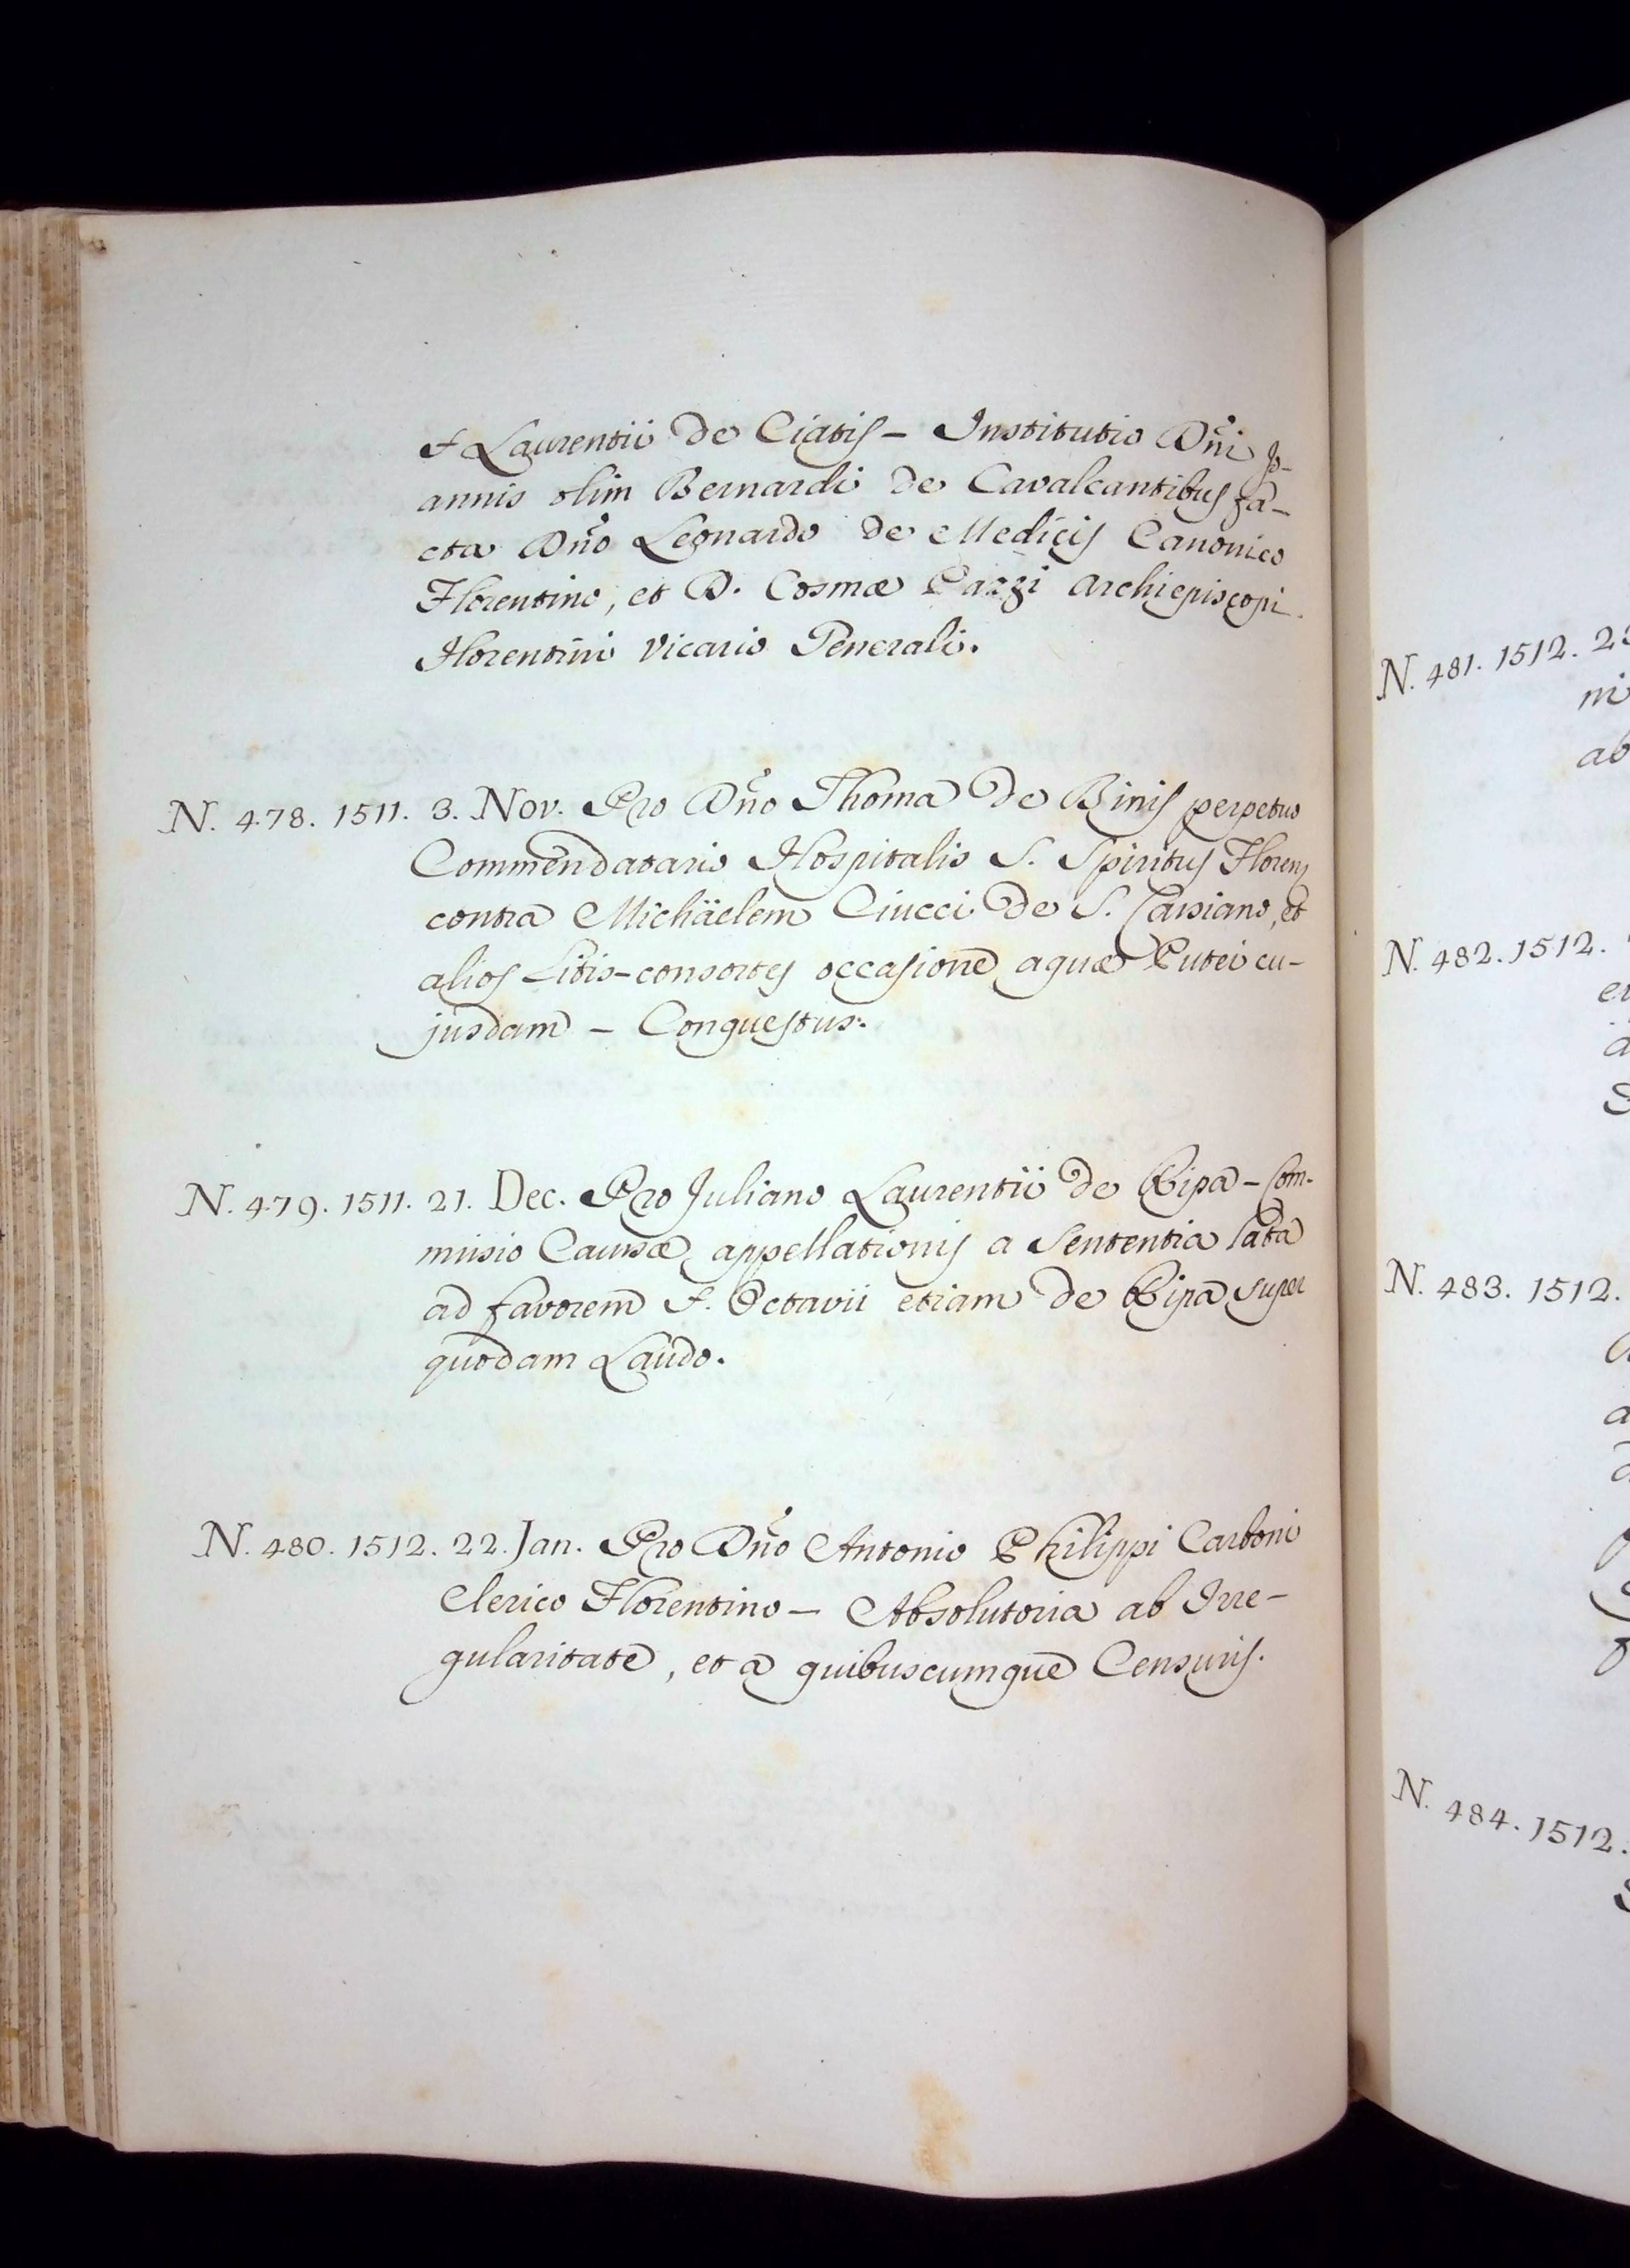 f. Laurentii de Ciatis – Institutio Dñi Jo-
annis olim Bernardi de Cavalcantibus fa-
cta Dño Leonardo de Medicis Canonico
Florentino, et D. Cosmæ Pazzi Archiepiscopi
Florentini Vicario Generali.
N. 478. 1511. 3. Nov. Pro Dño Thoma de Binis perpetuo
Commendatario Hospitalis S. Spiritus Floren
contra Michäelem Ciucci de S. Cassiano, et
alios Litis-consortes occasione aquæ Putei cu-
jusdam – Conquestus.
N. 479. 1511. 21. Dec. Pro Juliano Laurentii de Ripa – Com-
missio Causæ appellationis a Sententia lata
ad favorem f. Octavii etiam de Ripa super
quodam Laudo.
N. 480. 1512. 22. Jan. Pro Dño Antonio Philippi Carboni
Clerico Florentino – Absolutoria ab Irre-
gularitate, et a quibuscumque Censuris.
N. 481. 1512.
ab
N. 482. 1512.
N. 483. 1512.
N. 484. 1512.